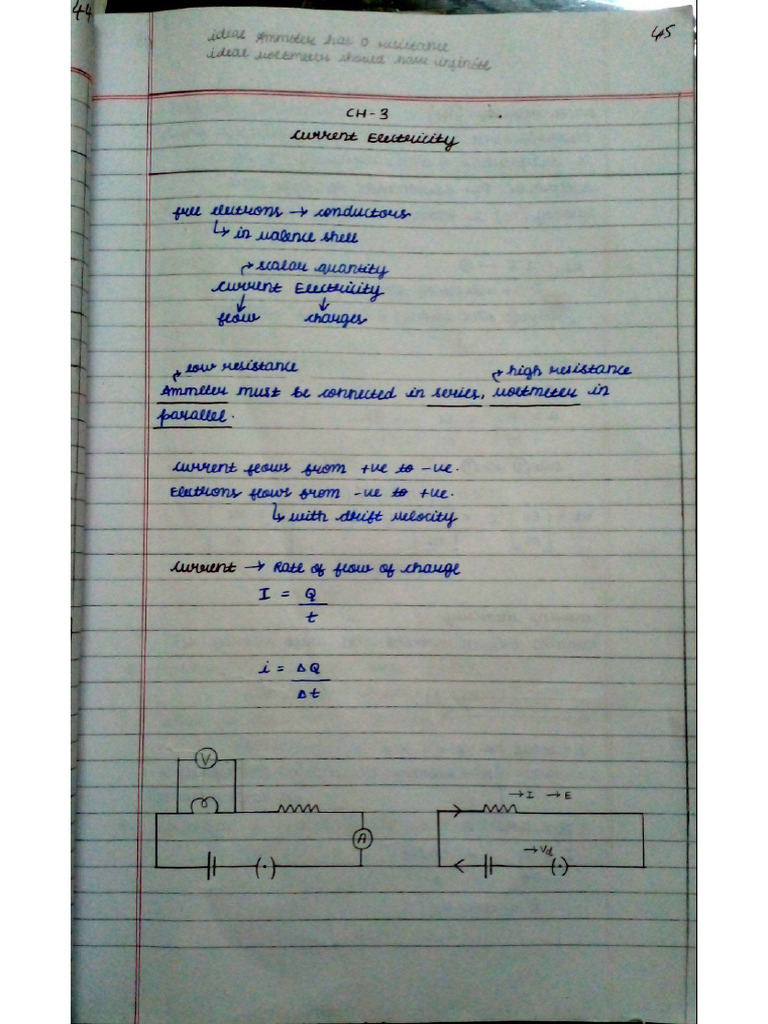 44
45
ideal Ammeter has 0 resistance
ideal voltmeter should have infinite
CH-3
Current Electricity
free electrons → conductors
↳ in valence shell
→ scalar quantity
Current Electricity
↓ ↓
flow charges
→ low resistance → high resistance
Ammeter must be connected in series, voltmeter in
parallel.
Current flows from +ve to -ve.
Electrons flows from -ve to +ve.
↳ with drift velocity
Current → Rate of flow of charge
I = Q
t
i = ΔQ
Δt
V
→ I → E
A
→ Vd